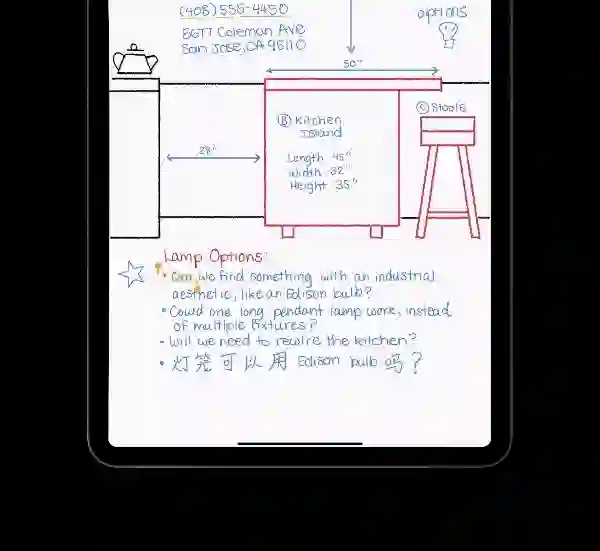 (408) 555-4450
5677 Coleman Ave
San Jose, CA 95110
options
50"
Ⓑ Kitchen
Island
Length 45"
Width 32"
Height 35"
28"
Ⓒ Stools
Lamp Options:
• Can we find something with an industrial
aesthetic, like an Edison bulb?
• Could one long pendant lamp work, instead
of multiple fixtures?
- Will we need to rewire the kitchen?
• 灯笼可以用 Edison bulb 吗?